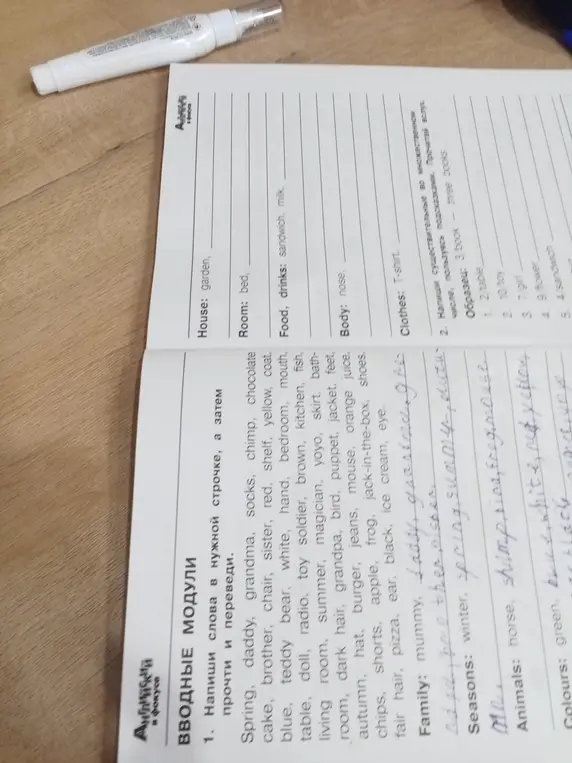 Английский
в фокусе
ВВОДНЫЕ МОДУЛИ
1. Напиши слова в нужной строчке, а затем
прочти и переведи.
Spring, daddy, grandma, socks, chimp, chocolate
cake, brother, chair, sister, red, shelf, yellow, coat,
blue, teddy bear, white, hand, bedroom, mouth,
table, doll, radio, toy soldier, brown, kitchen, fish,
living room, summer, magician, yoyo, skirt, bath-
room, dark hair, grandpa, bird, puppet, jacket, feet,
autumn, hat, burger, jeans, mouse, orange juice,
chips, shorts, apple, frog, jack-in-the-box, shoes,
fair hair, pizza, ear, black, ice cream, eye.
Family: mummy, daddy, grandma,
Seasons: winter, spring, summer, autu-
mn
Animals: horse, chimp,
Colours: green,
House: garden,
Room: bed,
Food, drinks: sandwich, milk,
Body: nose,
Clothes: T-shirt,
2. Напиши существительные во множественном
числе, пользуясь подсказками. Прочитай вслух.
Образец: 3 book – three books
1. 2 table
2. 10 boy
3. 7 girl
4. 9 flower
5. 4 sandwich